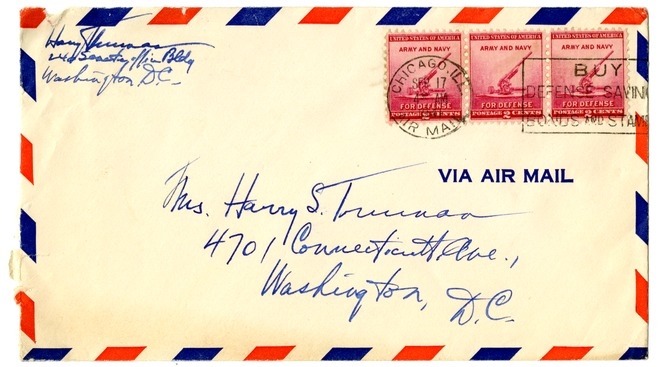 Harry Truman
240 Senate Office Bldg
Washington, D.C.
UNITED STATES OF AMERICA UNITED STATES OF AMERICA UNITED STATES OF AMERICA
ARMY AND NAVY ARMY AND NAVY ARMY AND NAVY
FOR DEFENSE FOR DEFENSE FOR DEFENSE
POSTAGE 2 CENTS POSTAGE 2 CENTS POSTAGE 2 CENTS
CHICAGO, ILL.
SEP 17
AIR MAIL
BUY
DEFENSE SAVING
BONDS AND STAMP
VIA AIR MAIL
Mrs. Harry S. Truman
4701 Connecticut Ave.,
Washington, D.C.